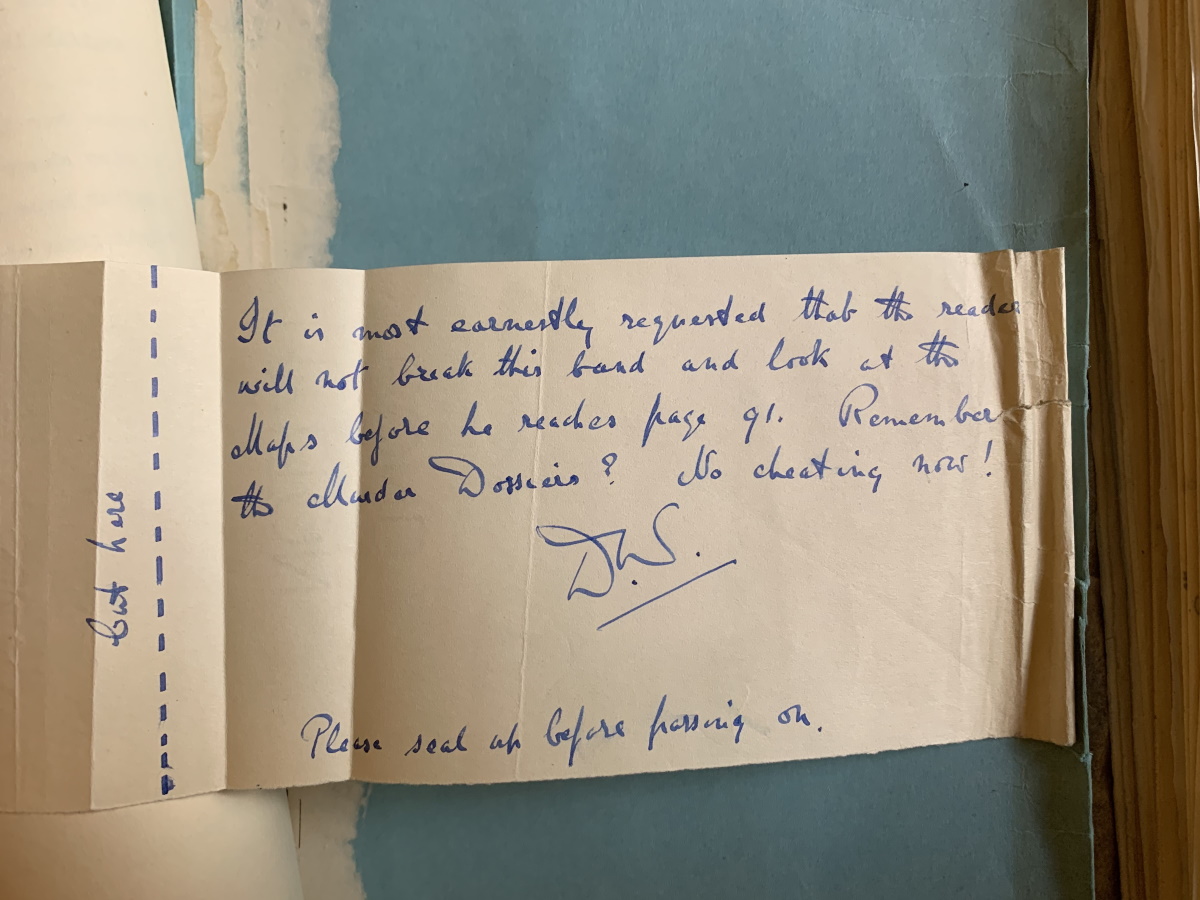 It is most earnestly requested that the reader
will not break this band and look at the
Maps before he reaches page 91. Remember
the Murder Dossiers? No cheating now!
D.W.
Please seal up before passing on.
Cut here